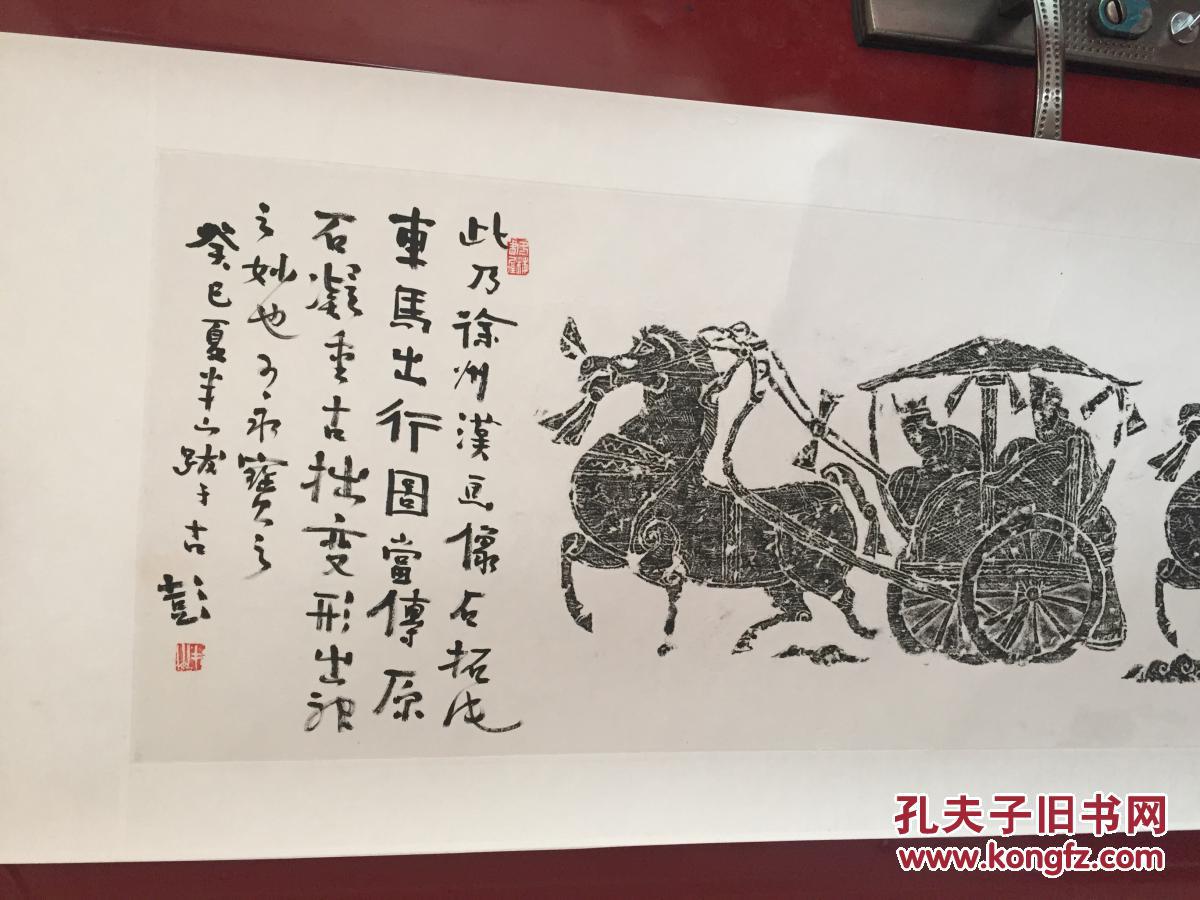 此乃徐州漢画像石拓片
車馬出行圖當傳原
石凝重古拙变形出神
之妙也可永寶之
癸巳夏半山跋于古
彭
孔夫子旧书网
www.kongfz.com